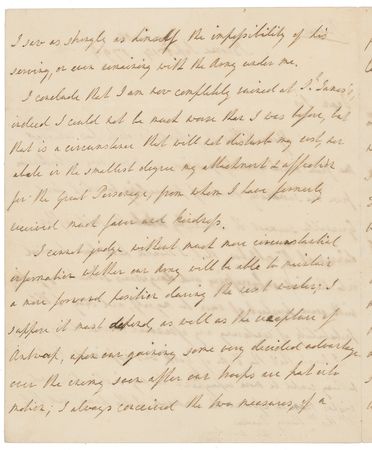 I saw as strongly as himself the impossibility of his
serving, or even remaining with the Army under me.
I conclude that I am now completely ruined at St. James's,
indeed I could not be much worse than I was before, but
that is a circumstance that will not disturb my rest, nor
abate in the smallest degree my attachment & affection
for the Great Personage, from whom I have formerly
received much favor and kindness.
I cannot judge without much more circumstantial
information whether our Army will be able to maintain
a more forward position during the next winter; I
suppose it must depend, as well as the recapture of
Antwerp, upon our gaining some very decided advantage
over the enemy soon after our troops are put into
motion; I always conceived the two measures, of a